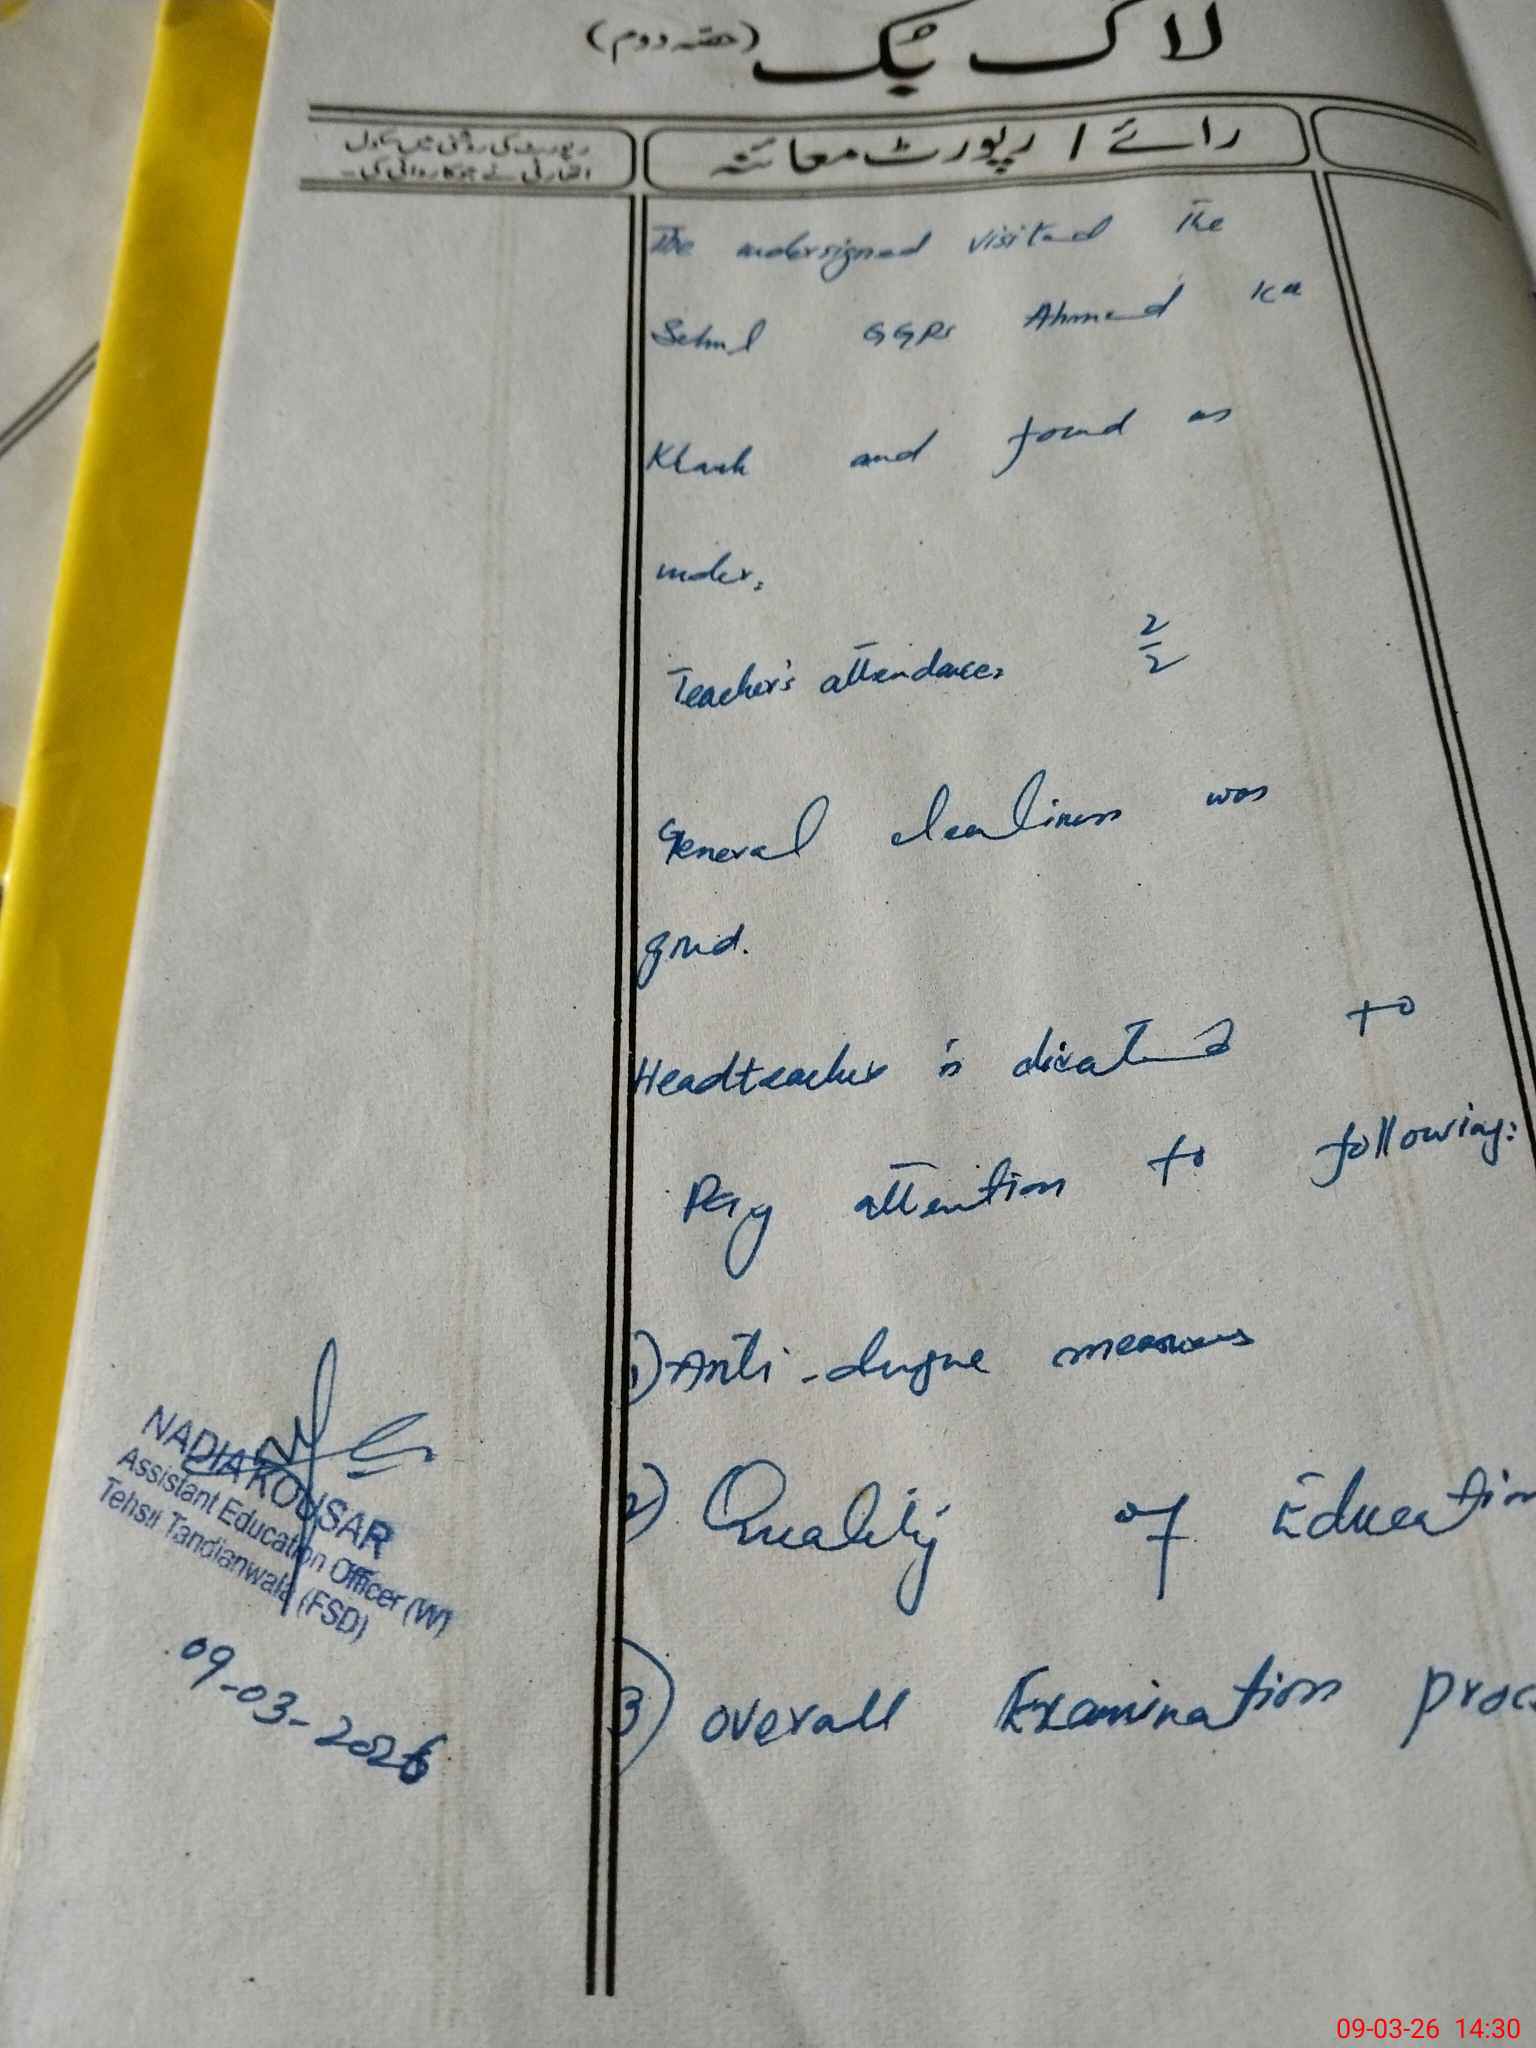 لاگ بُک (حصہ دوم)
رائے / رپورٹ معائنہ
رپورٹ کی روشنی میں سکول
اتھارٹی نے جو کاروائی کی۔
The undersigned visited the
School GGPS Ahmad Ka
Khuh and found as
under,
Teacher's attendance,
2
2
General cleanliness was
good.
Headteacher is directed to
Pay attention to following:
1) Anti-dengue measures
2) Quality of Education
3) overall Examination proc
NADIA KOUSAR
Assistant Education Officer (W)
Tehsil Tandianwala (FSD)
09-03-2026
09-03-26 14:30